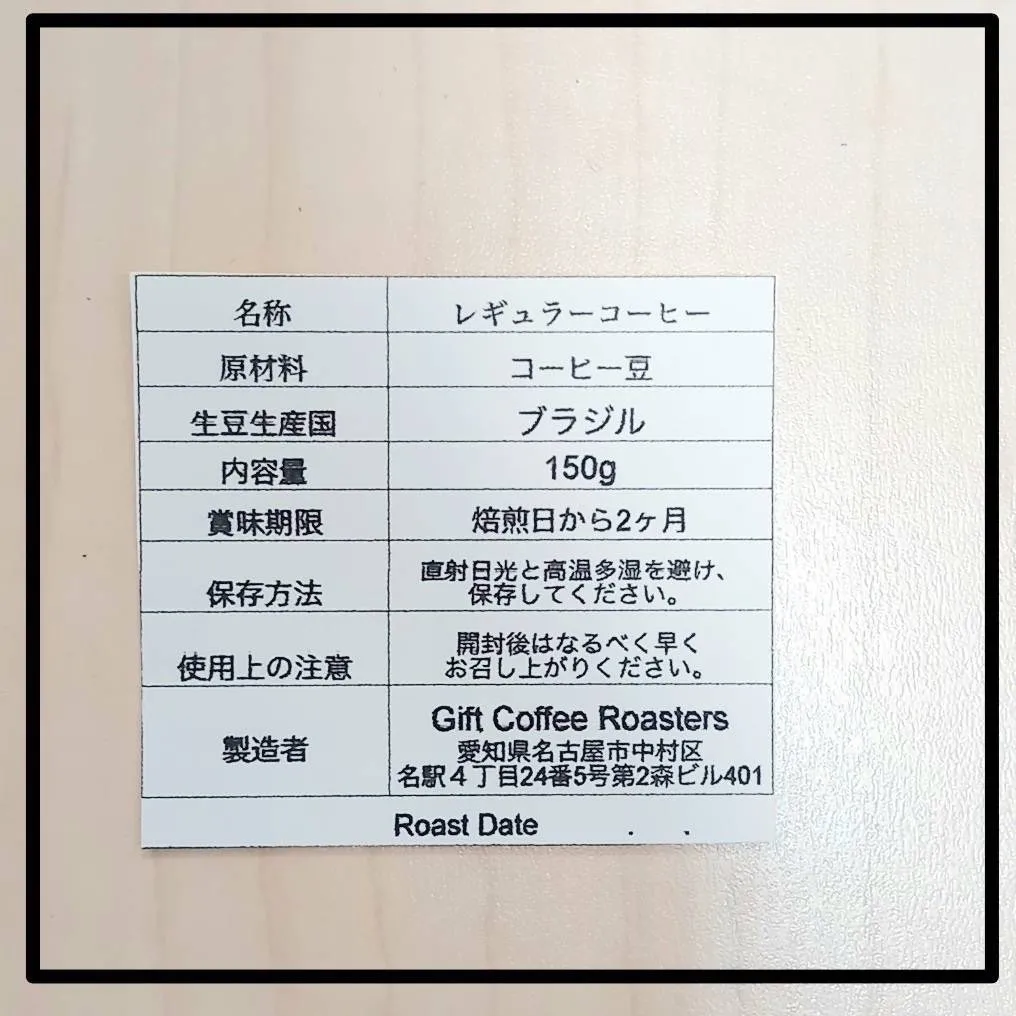 名称 レギュラーコーヒー
原材料 コーヒー豆
生豆生産国 ブラジル
内容量 150g
賞味期限 焙煎日から2ヶ月
保存方法 直射日光と高温多湿を避け、
保存してください。
使用上の注意 開封後はなるべく早く
お召し上がりください。
製造者 Gift Coffee Roasters
愛知県名古屋市中村区
名駅4丁目24番5号第2森ビル401
Roast Date . .